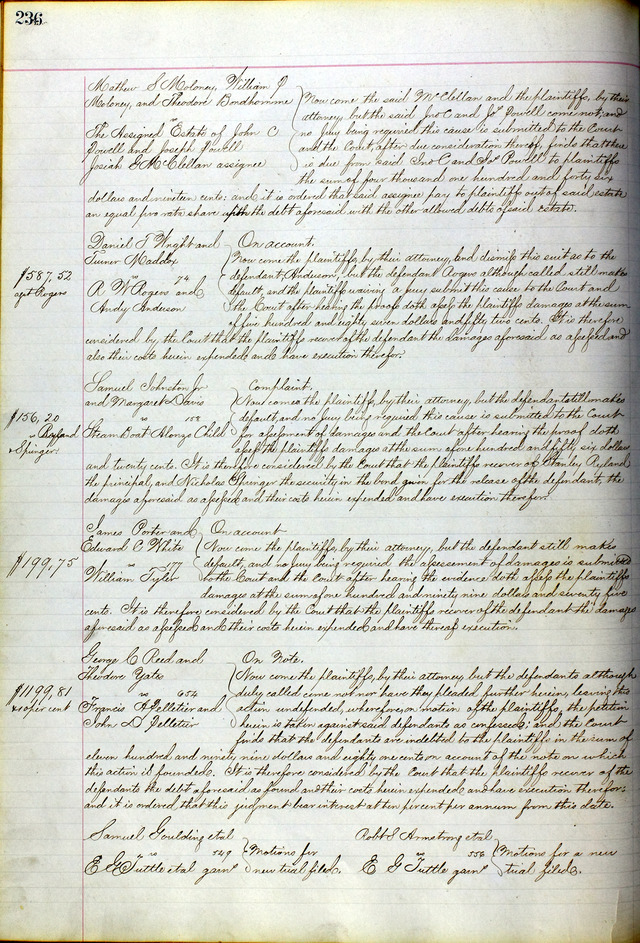 236
Mathew S Moloney, William J
Moloney, and Theodore Bondhomme
vs
The Assigned Estate of John C
Powell and Joseph Powell
Josiah G McClellan assignee
Now come the said McClellan and the plaintiffs, by their
attorney but the said Jno C and Jos Powell come not, and
no jury being required this cause is submitted to the Court
and the Court after due consideration thereof, finds that there
is due from said Jno C and Jos Powell to plaintiffs
the sum of four thousand one hundred and forty six
dollars and nineteen cents: and it is ordered that said assignee pay to plaintiffs out of said estate
an equal pro rata share upon the debt aforesaid with the other allowed debts of said estate.
Daniel T Wright and
Turner Maddox
vs 74
R W Rogers and
Andy Anderson
$587,52
agst Rogers
On account.
Now come the plaintiffs, by their attorney, and dismiss this suit as to the
defendant Anderson, but the defendant Rogers although called still makes
default, and the plaintiffs waiving a jury submit this cause to the Court and
the Court after hearing the proofs doth assess the plaintiffs damages at the sum
of five hundred and eighty seven dollars and fifty two cents. It is therefore
considered by the Court that the plaintiffs recover of the defendant the damages aforesaid as assessed and
also their costs herein expended, and have execution therefor.
Samuel Johnston Jr
and Margaret Davis
vs 158
Steam Boat Alonzo Child
$156,20
Ryland
& Spinger
Complaint.
Now come the plaintiffs, by their attorney, but the defendant still makes
default, and no jury being required this cause is submitted to the Court
for assessment of damages and the Court after hearing the proof doth
assess the plaintiffs damages at the sum of one hundred and fifty six dollars
and twenty cents. It is therefore considered by the Court that the plaintiffs recover of Stanley Ryland
the principal, and Nicholas Spenger the security in the bond given for the release of the defendant, the
damages aforesaid as assessed and their costs herein expended and have execution therefor.
James Porter and
Edward C White
vs 177
William Tyler
$199,75
On account
Now come the plaintiffs, by their attorney, but the defendant still makes
default, and no jury being required the assessment of damages is submitted
to the Court and the Court after hearing the evidence doth assess the plaintiffs
damages at the sum of one hundred and ninety nine dollars and seventy five
cents. It is therefore considered by the Court that the plaintiffs recover of the defendant the damages
aforesaid as assessed and their costs herein expended and have thereof execution.
George C Reed and
Theodore Yates
vs 654
Francis A Pelletier and
John D Pelletier
$1199,81
10 per cent
On Note.
Now come the plaintiffs, by their attorney, but the defendants although
duly called come not nor have they pleaded further herein, leaving this
action undefended, wherefore, on motion of the plaintiffs, the petition
herein is taken against said defendants as confessed; and the Court
finds that the defendants are indebted to the plaintiffs in the sum of
eleven hundred and ninety nine dollars and eighty one cents on account of the note on which
this action is founded. It is therefore considered by the Court that the plaintiffs recover of the
defendants the debt aforesaid as found and their costs herein expended and have execution therefor:
and it is ordered that this judgment bear interest at ten per cent per annum from this date.
Samuel Goulding et al
vs 549
E G Tuttle et al garn
Motions for
new trial filed.
Robt S Armstrong et al
vs 556
E G Tuttle garn
Motions for a new
trial filed.